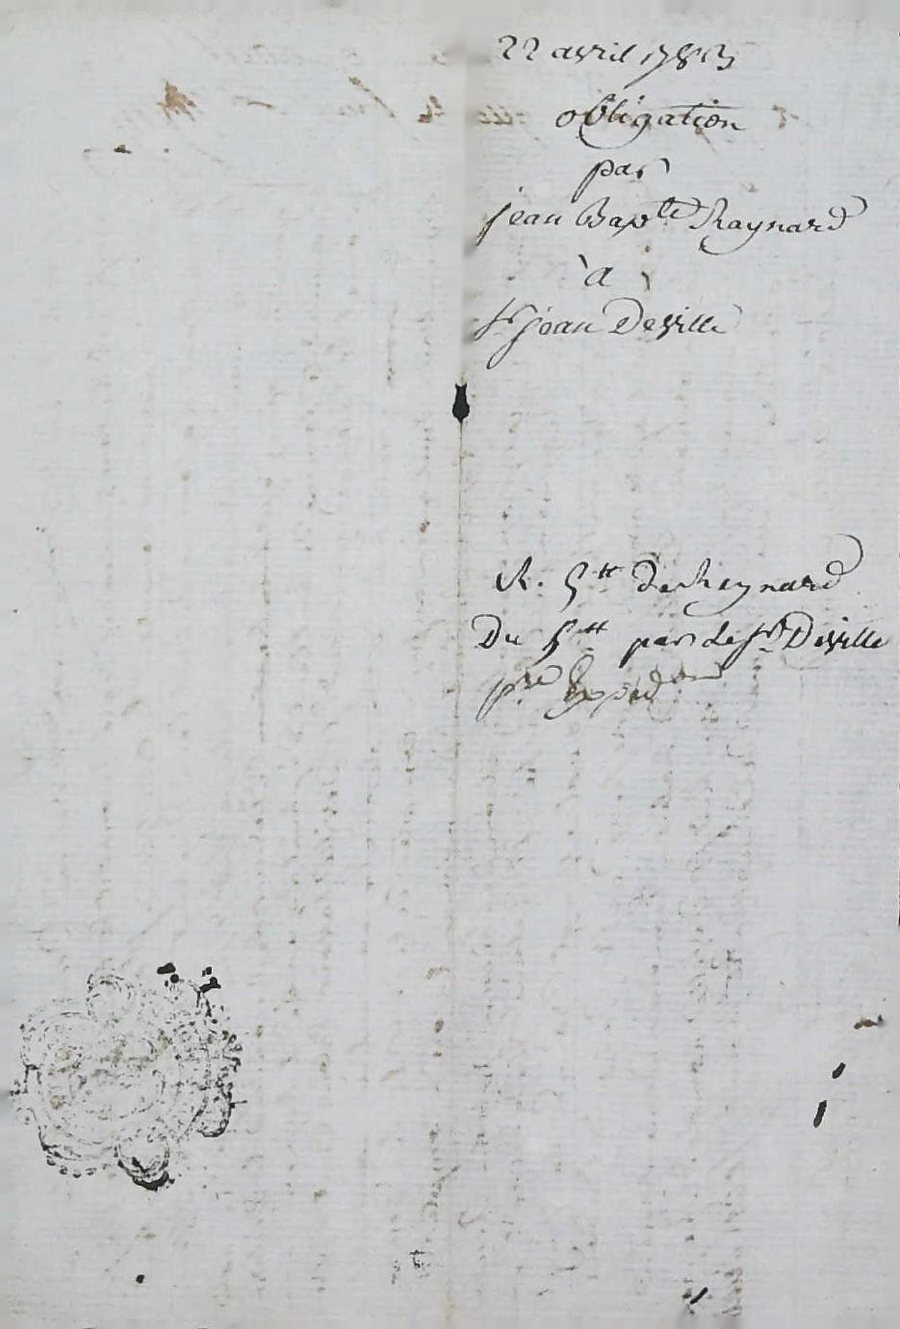 22 avril 1783
obligation
par
jean Bap.te Raynard
à
Sr jean Deville
R. 5tt de Reynard
Du 5tt par le Sr Deville
pre Expéd